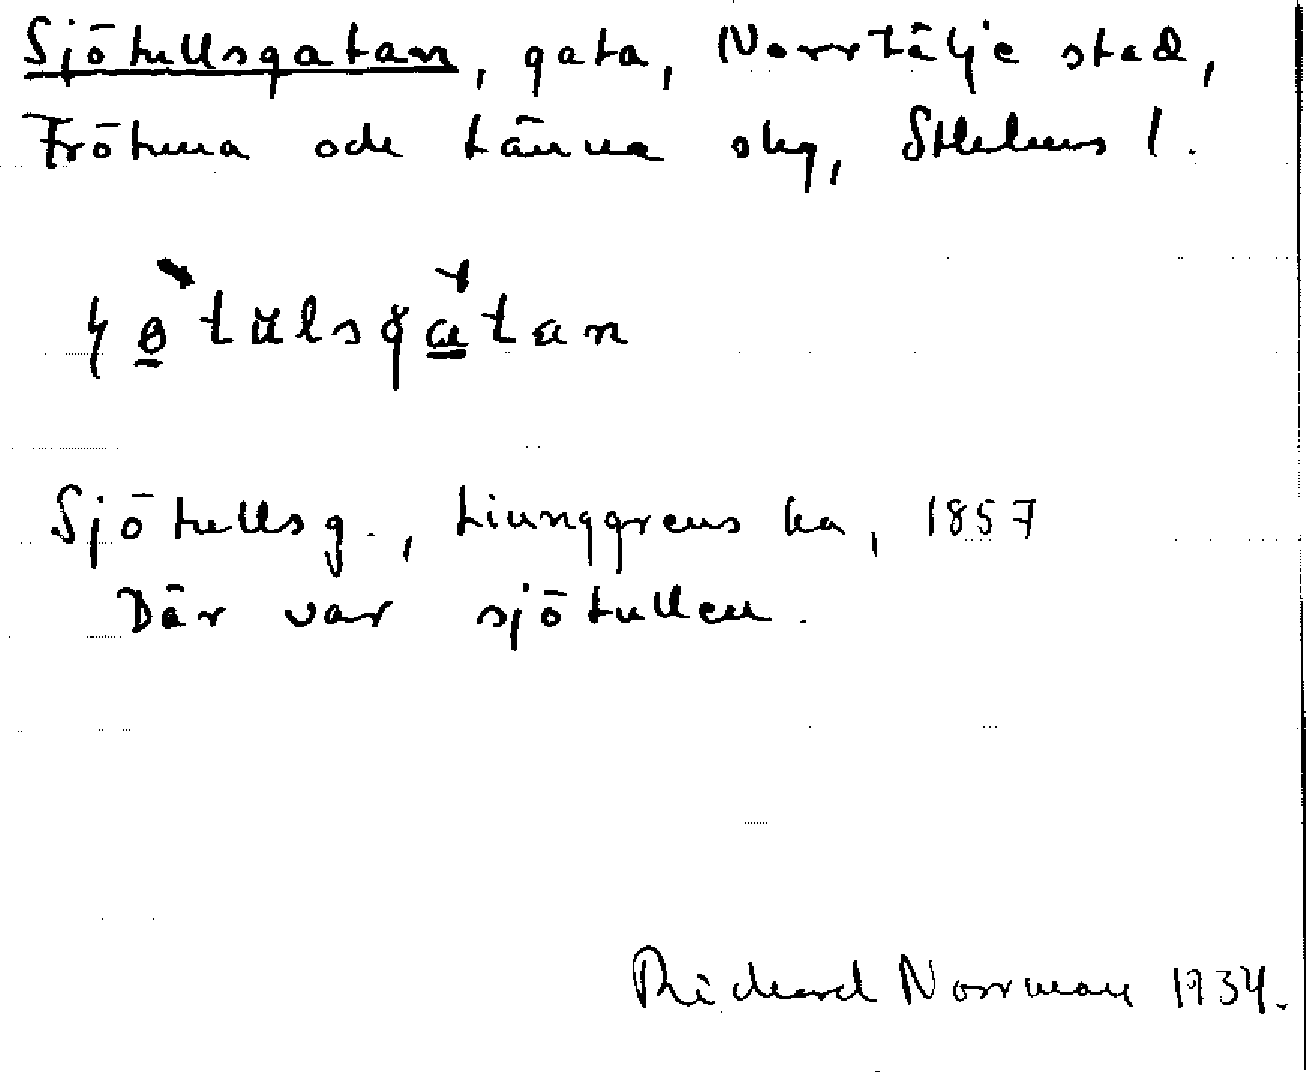 Sjötullsgatan, gata, Norrtälje stad,
Frötuna och Länna skg, Sthlms l.
Sjötullsg., Ljunggrens ka, 1857
Där var sjötullen.
Richard Norrman 1934.